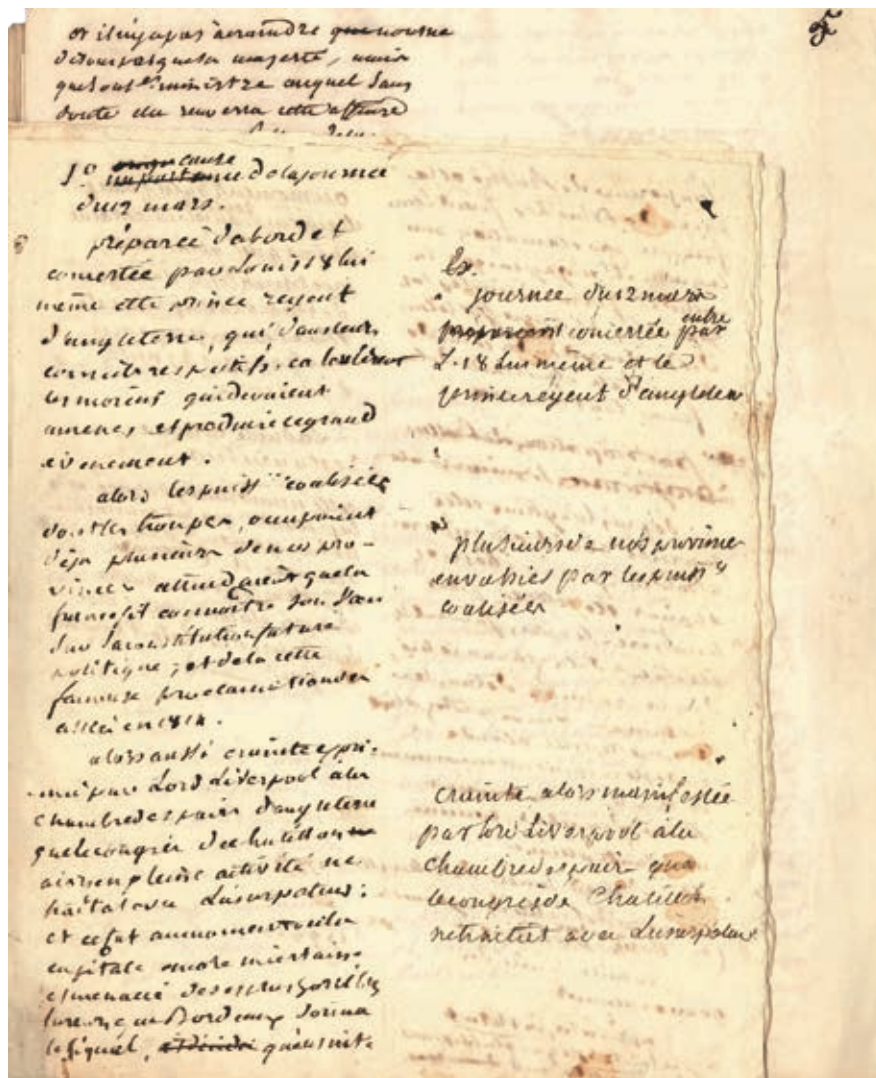 et il n'y a pas à craindre que nous ne
majesté, mais
ministre auquel sans
doute elle renverra cette affaire
1° cause de la journée
du 12 mars.
préparée d'abord et
concertée par Louis 18 lui
même et le prince régent
d'angleterre, qui dans leurs
comités respectifs,
les moyens qui devaient
amener et produire ce grand
évenement.
alors les puiss coalisées
dont les troupes occupaient
déja plusieurs de nos pro-
vinces attendaient que la
france fit connoitre son
sur sa constitution future
politique; et de la cette
fameuse proclamation
en 1814.
alors aussi crainte expri-
mée par Lord Liverpool à la
chambre des pairs d'angleterre
que le congrès de chatillon
en pleine activité ne
traitat avec L'usurpateur:
et ce fut au moment où la
capitale encore incertaine
et menacée
que Bordeaux donna
le signal, qu'ensuite
journée du 12 mars
concertée entre par
L. 18 lui même et le
prince régent d'angleterre
plusieurs de nos provinces
envahies par les puiss
coalisées
crainte alors manifestée
par lord Liverpool à la
chambre des pairs que
le congrès de Chatillon
ne traitat avec L'usurpateur